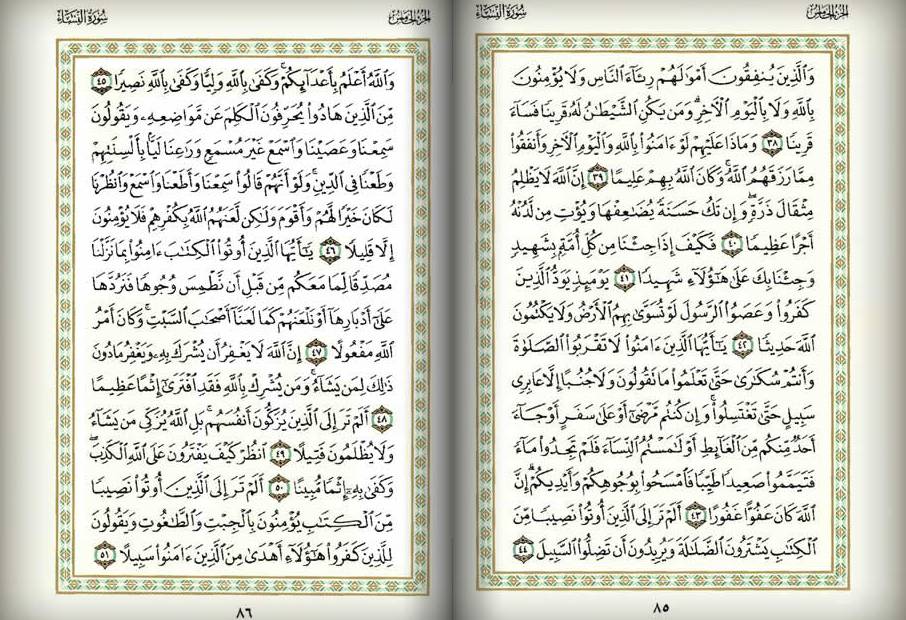 الجزء الخامس
سورة النساء
وَالَّذِينَ يُنفِقُونَ أَمْوَٰلَهُمْ رِئَآءَ النَّاسِ وَلَا يُؤْمِنُونَ
بِاللَّهِ وَلَا بِالْيَوْمِ الْآخِرِ ۗ وَمَن يَكُنِ الشَّيْطَـٰنُ لَهُۥ قَرِينًا فَسَآءَ
قَرِينًا ٣٨ وَمَاذَا عَلَيْهِمْ لَوْ ءَامَنُوا بِاللَّهِ وَالْيَوْمِ الْآخِرِ وَأَنفَقُوا
مِمَّا رَزَقَهُمُ اللَّهُ ۚ وَكَانَ اللَّهُ بِهِمْ عَلِيمًا ٣٩ إِنَّ اللَّهَ لَا يَظْلِمُ
مِثْقَالَ ذَرَّةٍ ۖ وَإِن تَكُ حَسَنَةً يُضَـٰعِفْهَا وَيُؤْتِ مِن لَّدُنْهُ
أَجْرًا عَظِيمًا ٤٠ فَكَيْفَ إِذَا جِئْنَا مِن كُلِّ أُمَّةٍ بِشَهِيدٍ
وَجِئْنَا بِكَ عَلَىٰ هَـٰٓؤُلَآءِ شَهِيدًا ٤١ يَوْمَئِذٍ يَوَدُّ الَّذِينَ
كَفَرُوا وَعَصَوُا الرَّسُولَ لَوْ تُسَوَّىٰ بِهِمُ الْأَرْضُ وَلَا يَكْتُمُونَ
اللَّهَ حَدِيثًا ٤٢ يَـٰٓأَيُّهَا الَّذِينَ ءَامَنُوا لَا تَقْرَبُوا الصَّلَوٰةَ
وَأَنتُمْ سُكَـٰرَىٰ حَتَّىٰ تَعْلَمُوا مَا تَقُولُونَ وَلَا جُنُبًا إِلَّا عَابِرِى
سَبِيلٍ حَتَّىٰ تَغْتَسِلُوا ۚ وَإِن كُنتُم مَّرْضَىٰٓ أَوْ عَلَىٰ سَفَرٍ أَوْ جَآءَ
أَحَدٌ مِّنكُم مِّنَ الْغَآئِطِ أَوْ لَـٰمَسْتُمُ النِّسَآءَ فَلَمْ تَجِدُوا مَآءً
فَتَيَمَّمُوا صَعِيدًا طَيِّبًا فَامْسَحُوا بِوُجُوهِكُمْ وَأَيْدِيكُمْ ۗ إِنَّ
اللَّهَ كَانَ عَفُوًّا غَفُورًا ٤٣ أَلَمْ تَرَ إِلَى الَّذِينَ أُوتُوا نَصِيبًا مِّنَ
الْكِتَـٰبِ يَشْتَرُونَ الضَّلَـٰلَةَ وَيُرِيدُونَ أَن تَضِلُّوا السَّبِيلَ ٤٤
٨٥
الجزء الخامس
سورة النساء
وَاللَّهُ أَعْلَمُ بِأَعْدَآئِكُمْ ۚ وَكَفَىٰ بِاللَّهِ وَلِيًّا وَكَفَىٰ بِاللَّهِ نَصِيرًا ٤٥
مِّنَ الَّذِينَ هَادُوا يُحَرِّفُونَ الْكَلِمَ عَن مَّوَاضِعِهِۦ وَيَقُولُونَ
سَمِعْنَا وَعَصَيْنَا وَاسْمَعْ غَيْرَ مُسْمَعٍ وَرَٰعِنَا لَيًّا بِأَلْسِنَتِهِمْ
وَطَعْنًا فِى الدِّينِ ۚ وَلَوْ أَنَّهُمْ قَالُوا سَمِعْنَا وَأَطَعْنَا وَاسْمَعْ وَانظُرْنَا
لَكَانَ خَيْرًا لَّهُمْ وَأَقْوَمَ وَلَـٰكِن لَّعَنَهُمُ اللَّهُ بِكُفْرِهِمْ فَلَا يُؤْمِنُونَ
إِلَّا قَلِيلًا ٤٦ يَـٰٓأَيُّهَا الَّذِينَ أُوتُوا الْكِتَـٰبَ ءَامِنُوا بِمَا نَزَّلْنَا
مُصَدِّقًا لِّمَا مَعَكُم مِّن قَبْلِ أَن نَّطْمِسَ وُجُوهًا فَنَرُدَّهَا
عَلَىٰٓ أَدْبَارِهَآ أَوْ نَلْعَنَهُمْ كَمَا لَعَنَّآ أَصْحَـٰبَ السَّبْتِ ۚ وَكَانَ أَمْرُ
اللَّهِ مَفْعُولًا ٤٧ إِنَّ اللَّهَ لَا يَغْفِرُ أَن يُشْرَكَ بِهِۦ وَيَغْفِرُ مَا دُونَ
ذَٰلِكَ لِمَن يَشَآءُ ۚ وَمَن يُشْرِكْ بِاللَّهِ فَقَدِ افْتَرَىٰٓ إِثْمًا عَظِيمًا
٤٨ أَلَمْ تَرَ إِلَى الَّذِينَ يُزَكُّونَ أَنفُسَهُم ۚ بَلِ اللَّهُ يُزَكِّى مَن يَشَآءُ
وَلَا يُظْلَمُونَ فَتِيلًا ٤٩ انظُرْ كَيْفَ يَفْتَرُونَ عَلَى اللَّهِ الْكَذِبَ ۖ
وَكَفَىٰ بِهِۦٓ إِثْمًا مُّبِينًا ٥٠ أَلَمْ تَرَ إِلَى الَّذِينَ أُوتُوا نَصِيبًا
مِّنَ الْكِتَـٰبِ يُؤْمِنُونَ بِالْجِبْتِ وَالطَّـٰغُوتِ وَيَقُولُونَ
لِلَّذِينَ كَفَرُوا هَـٰٓؤُلَآءِ أَهْدَىٰ مِنَ الَّذِينَ ءَامَنُوا سَبِيلًا ٥١
٨٦